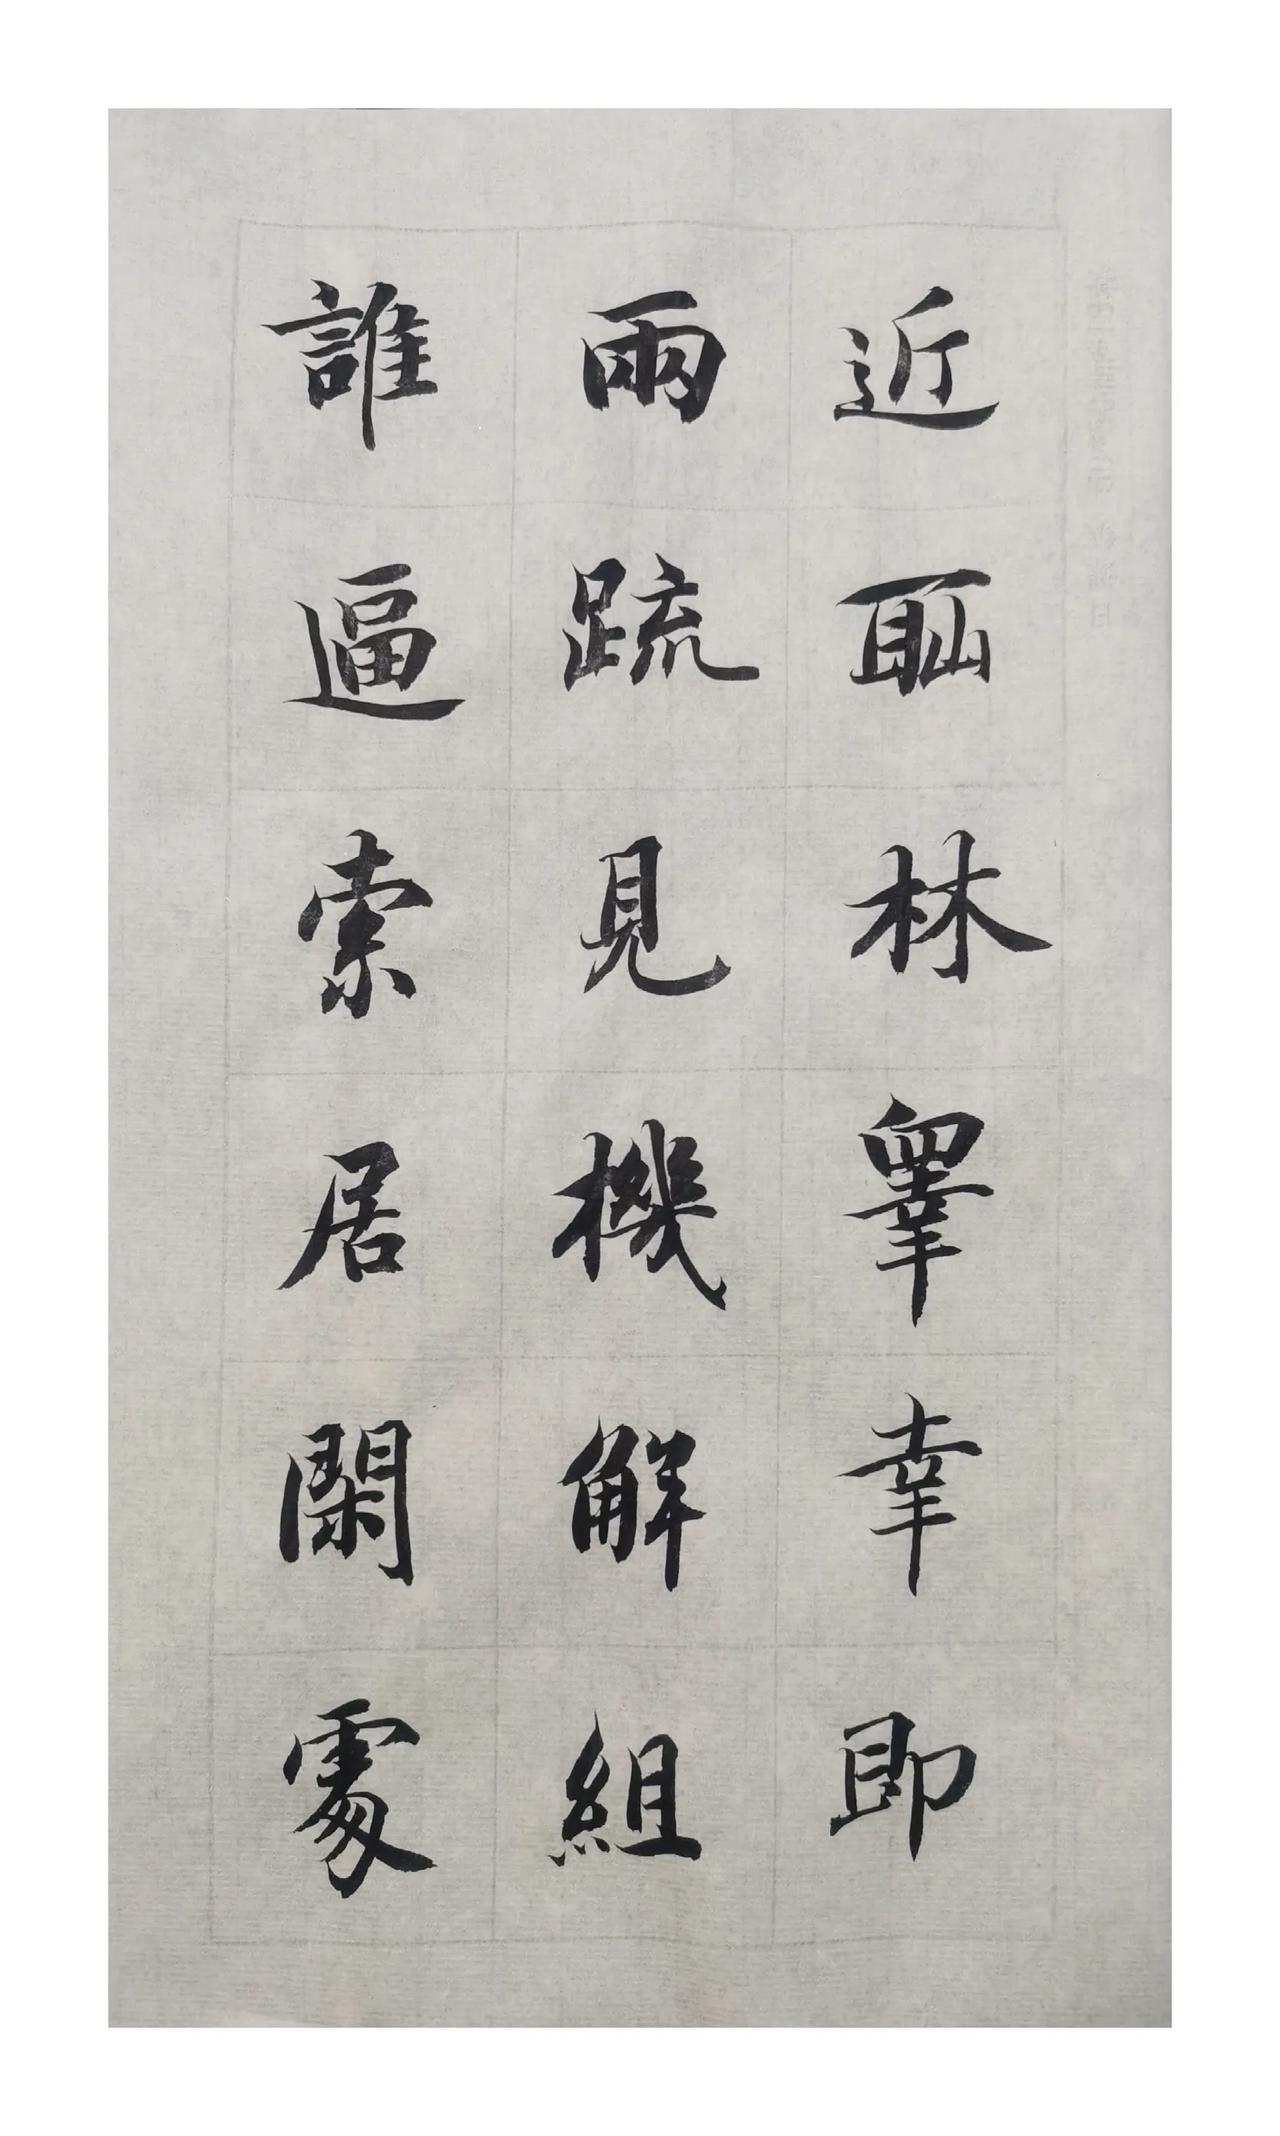 近耻林睾幸即
兩疏見機解組
誰逼索居閑處